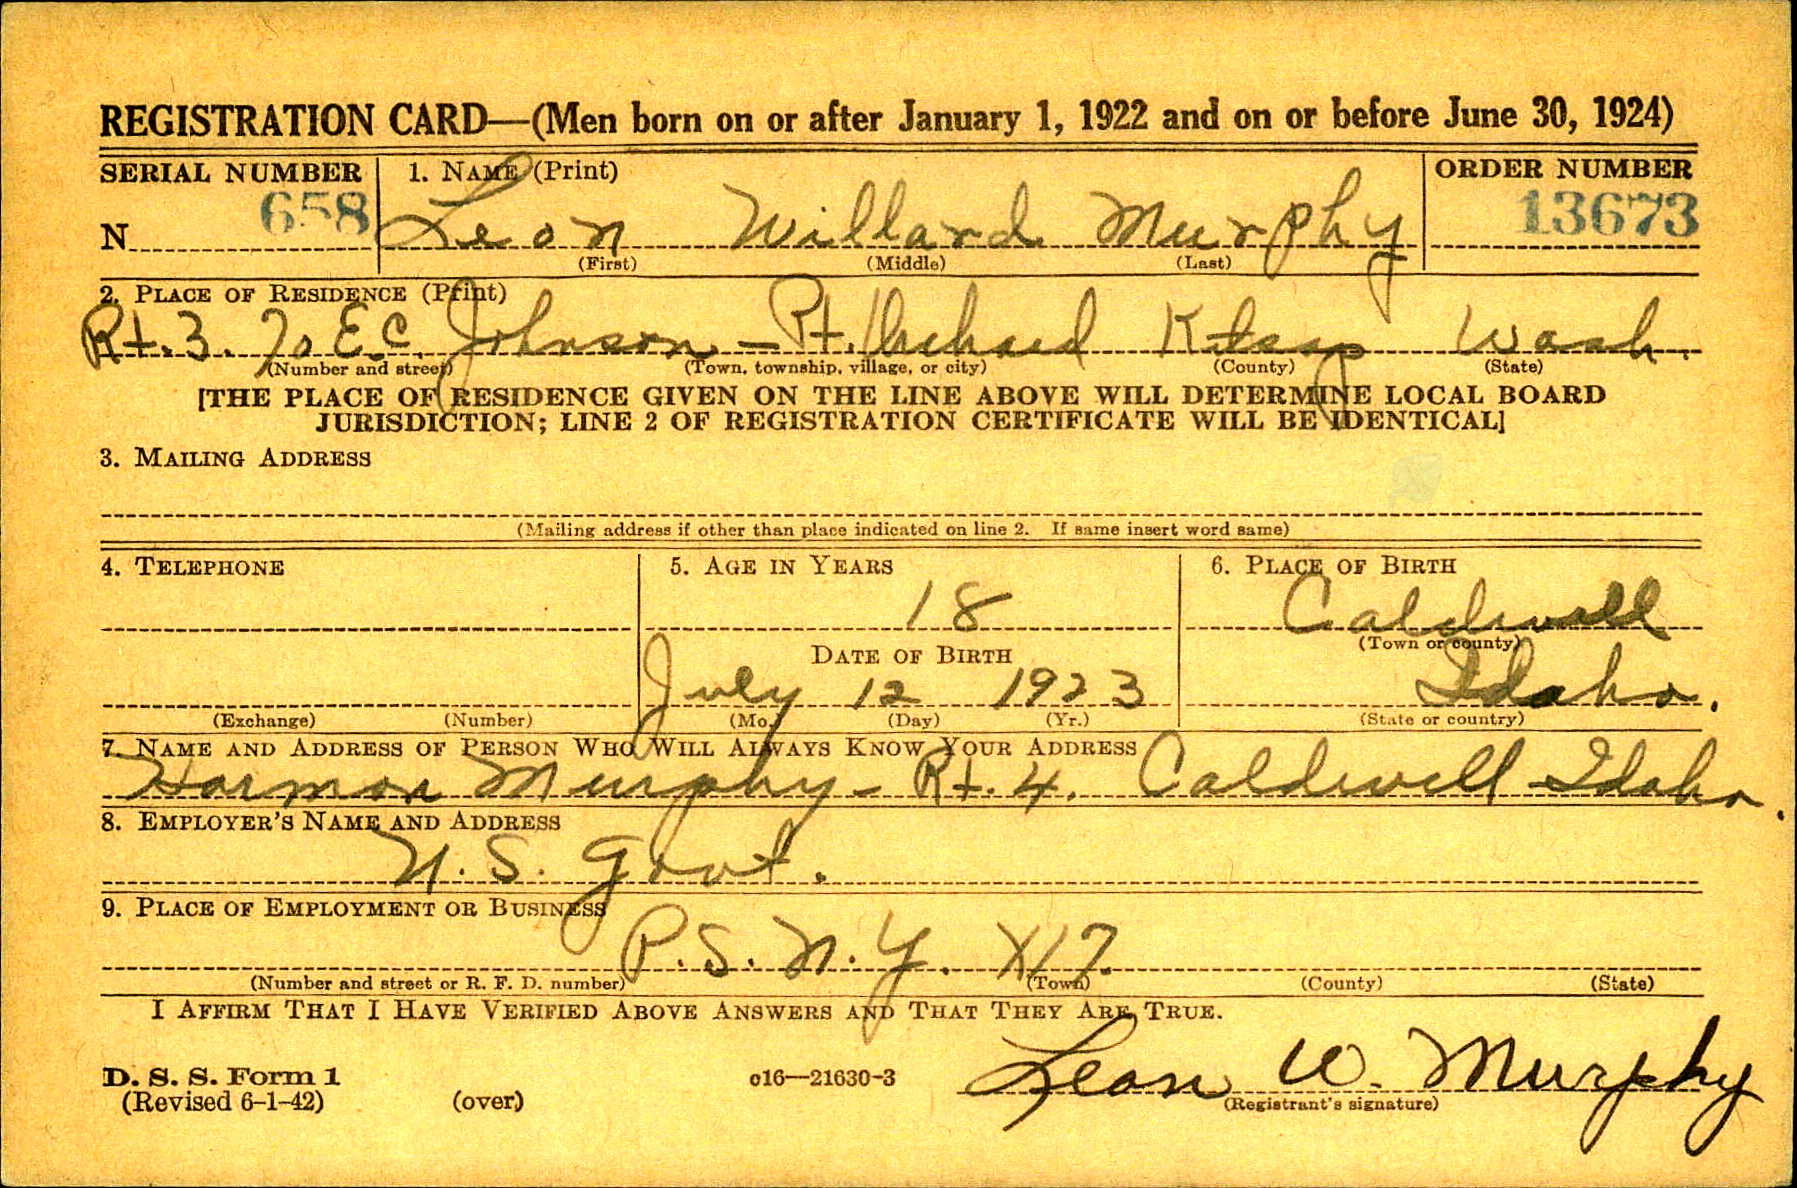 REGISTRATION CARD—(Men born on or after January 1, 1922 and on or before June 30, 1924)
SERIAL NUMBER 1. NAME (Print) ORDER NUMBER
N 658 Leon Willard Murphy 13673
(First) (Middle) (Last)
2. PLACE OF RESIDENCE (Print)
Rt. 3. % E.C. Johnson - Pt. Orchard Kitsap Wash.
(Number and street) (Town, township, village, or city) (County) (State)
[THE PLACE OF RESIDENCE GIVEN ON THE LINE ABOVE WILL DETERMINE LOCAL BOARD
JURISDICTION; LINE 2 OF REGISTRATION CERTIFICATE WILL BE IDENTICAL]
3. MAILING ADDRESS
(Mailing address if other than place indicated on line 2. If same insert word same)
4. TELEPHONE 5. AGE IN YEARS 6. PLACE OF BIRTH
18 Caldwell
(Town or county)
DATE OF BIRTH
July 12 1923 Idaho.
(Exchange) (Number) (Mo.) (Day) (Yr.) (State or country)
7. NAME AND ADDRESS OF PERSON WHO WILL ALWAYS KNOW YOUR ADDRESS
Harmon Murphy - Rt. 4. Caldwell Idaho.
8. EMPLOYER'S NAME AND ADDRESS
U.S. Govt.
9. PLACE OF EMPLOYMENT OR BUSINESS
P.S.N.Y. X17
(Number and street or R. F. D. number) (Town) (County) (State)
I AFFIRM THAT I HAVE VERIFIED ABOVE ANSWERS AND THAT THEY ARE TRUE.
D. S. S. Form 1
(Revised 6-1-42) (over) c16—21630-3 Leon W. Murphy
(Registrant's signature)